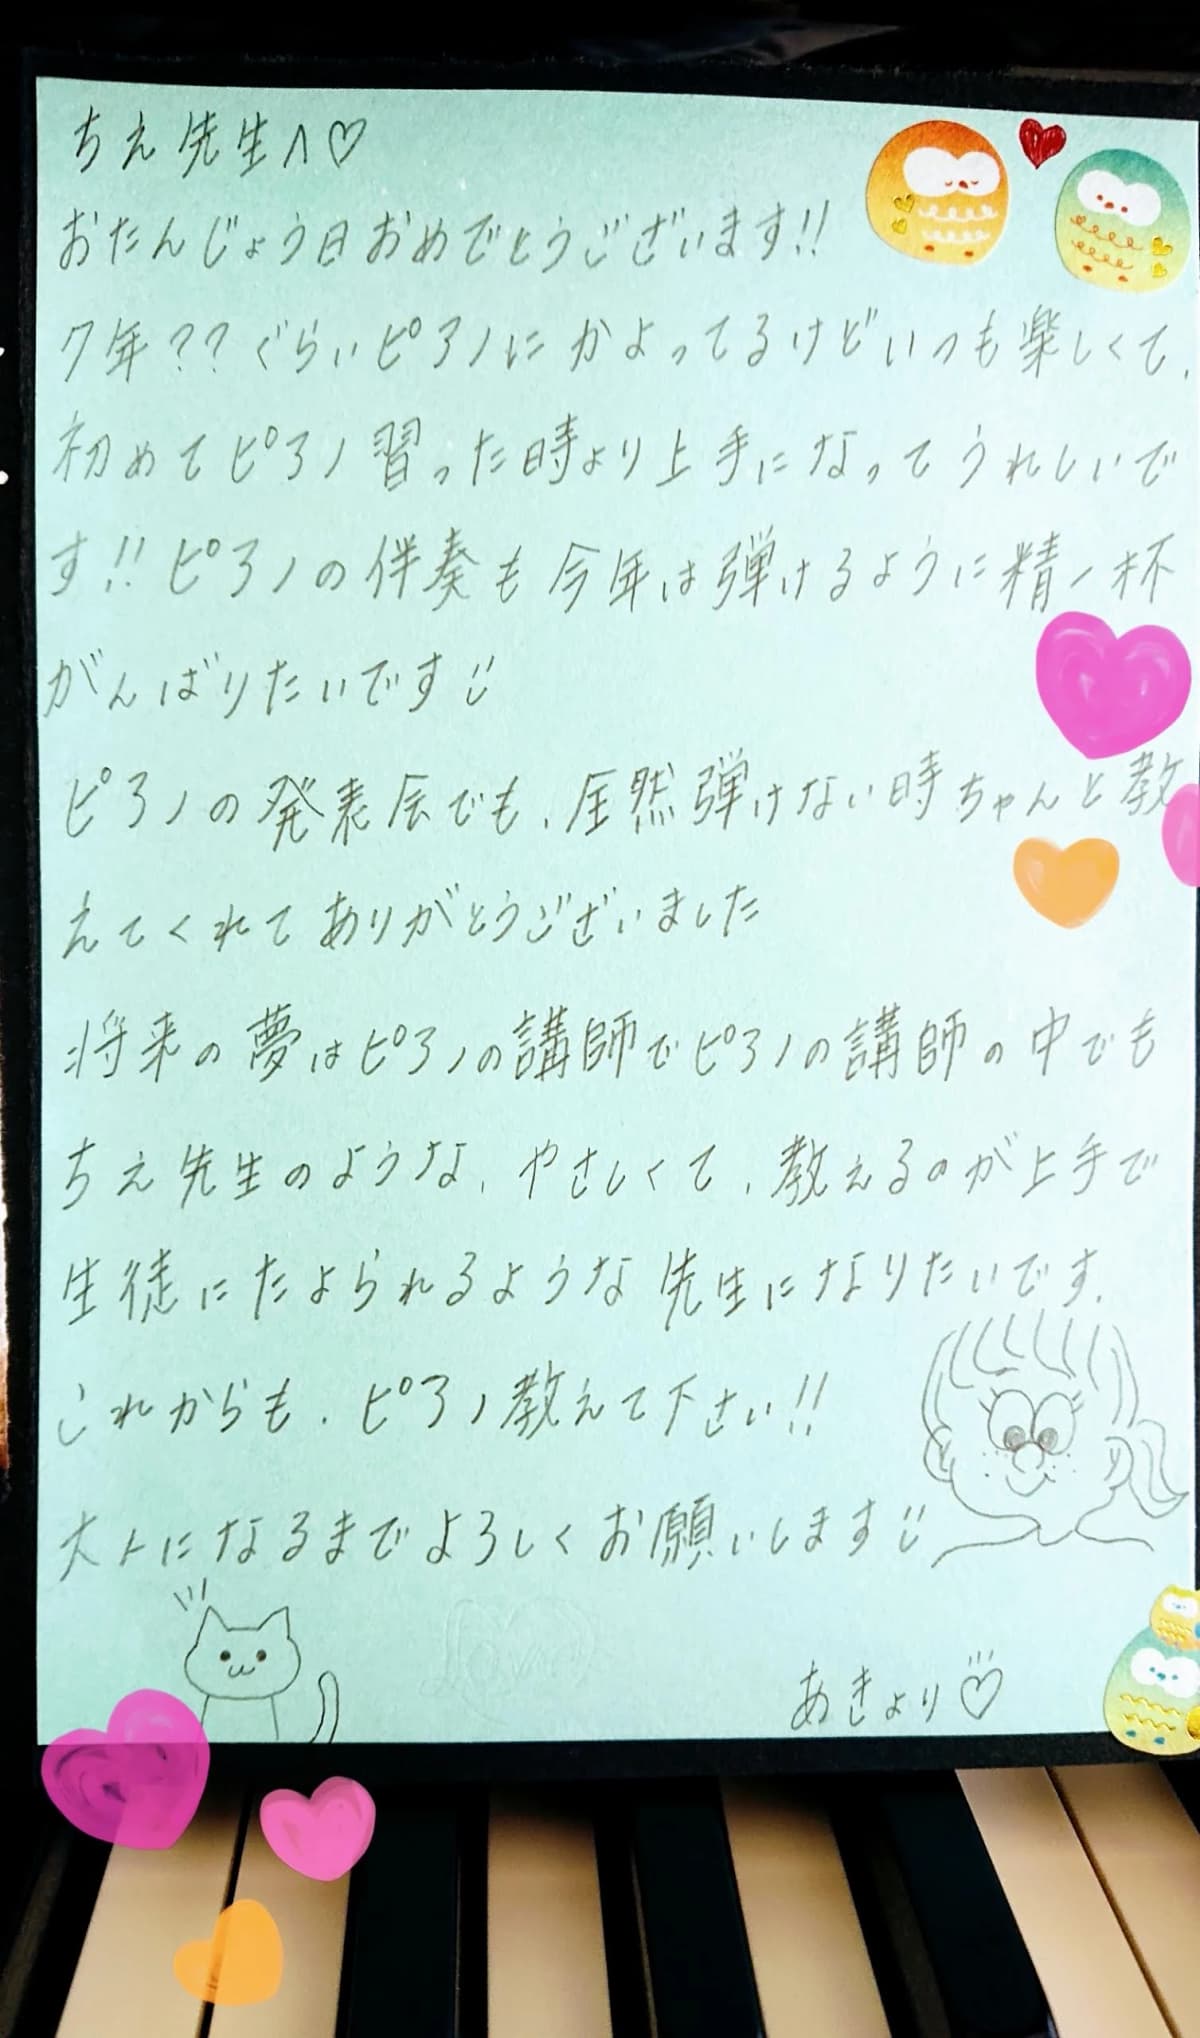 ちえ先生へ♡
おたんじょう日おめでとうございます!!
7年??ぐらいピアノにかよってるけどいつも楽しくて、
初めてピアノ習った時より上手になってうれしいで
す!!ピアノの伴奏も今年は弾けるように精一杯
がんばりたいです
ピアノの発表会でも、全然弾けない時ちゃんと教
えてくれてありがとうございました
将来の夢はピアノの講師でピアノの講師の中でも
ちえ先生のような、やさしくて、教えるのが上手で
生徒にたよられるような先生になりたいです。
これからも、ピアノ教えて下さい!!
大人になるまでよろしくお願いします
Love
あきより♡